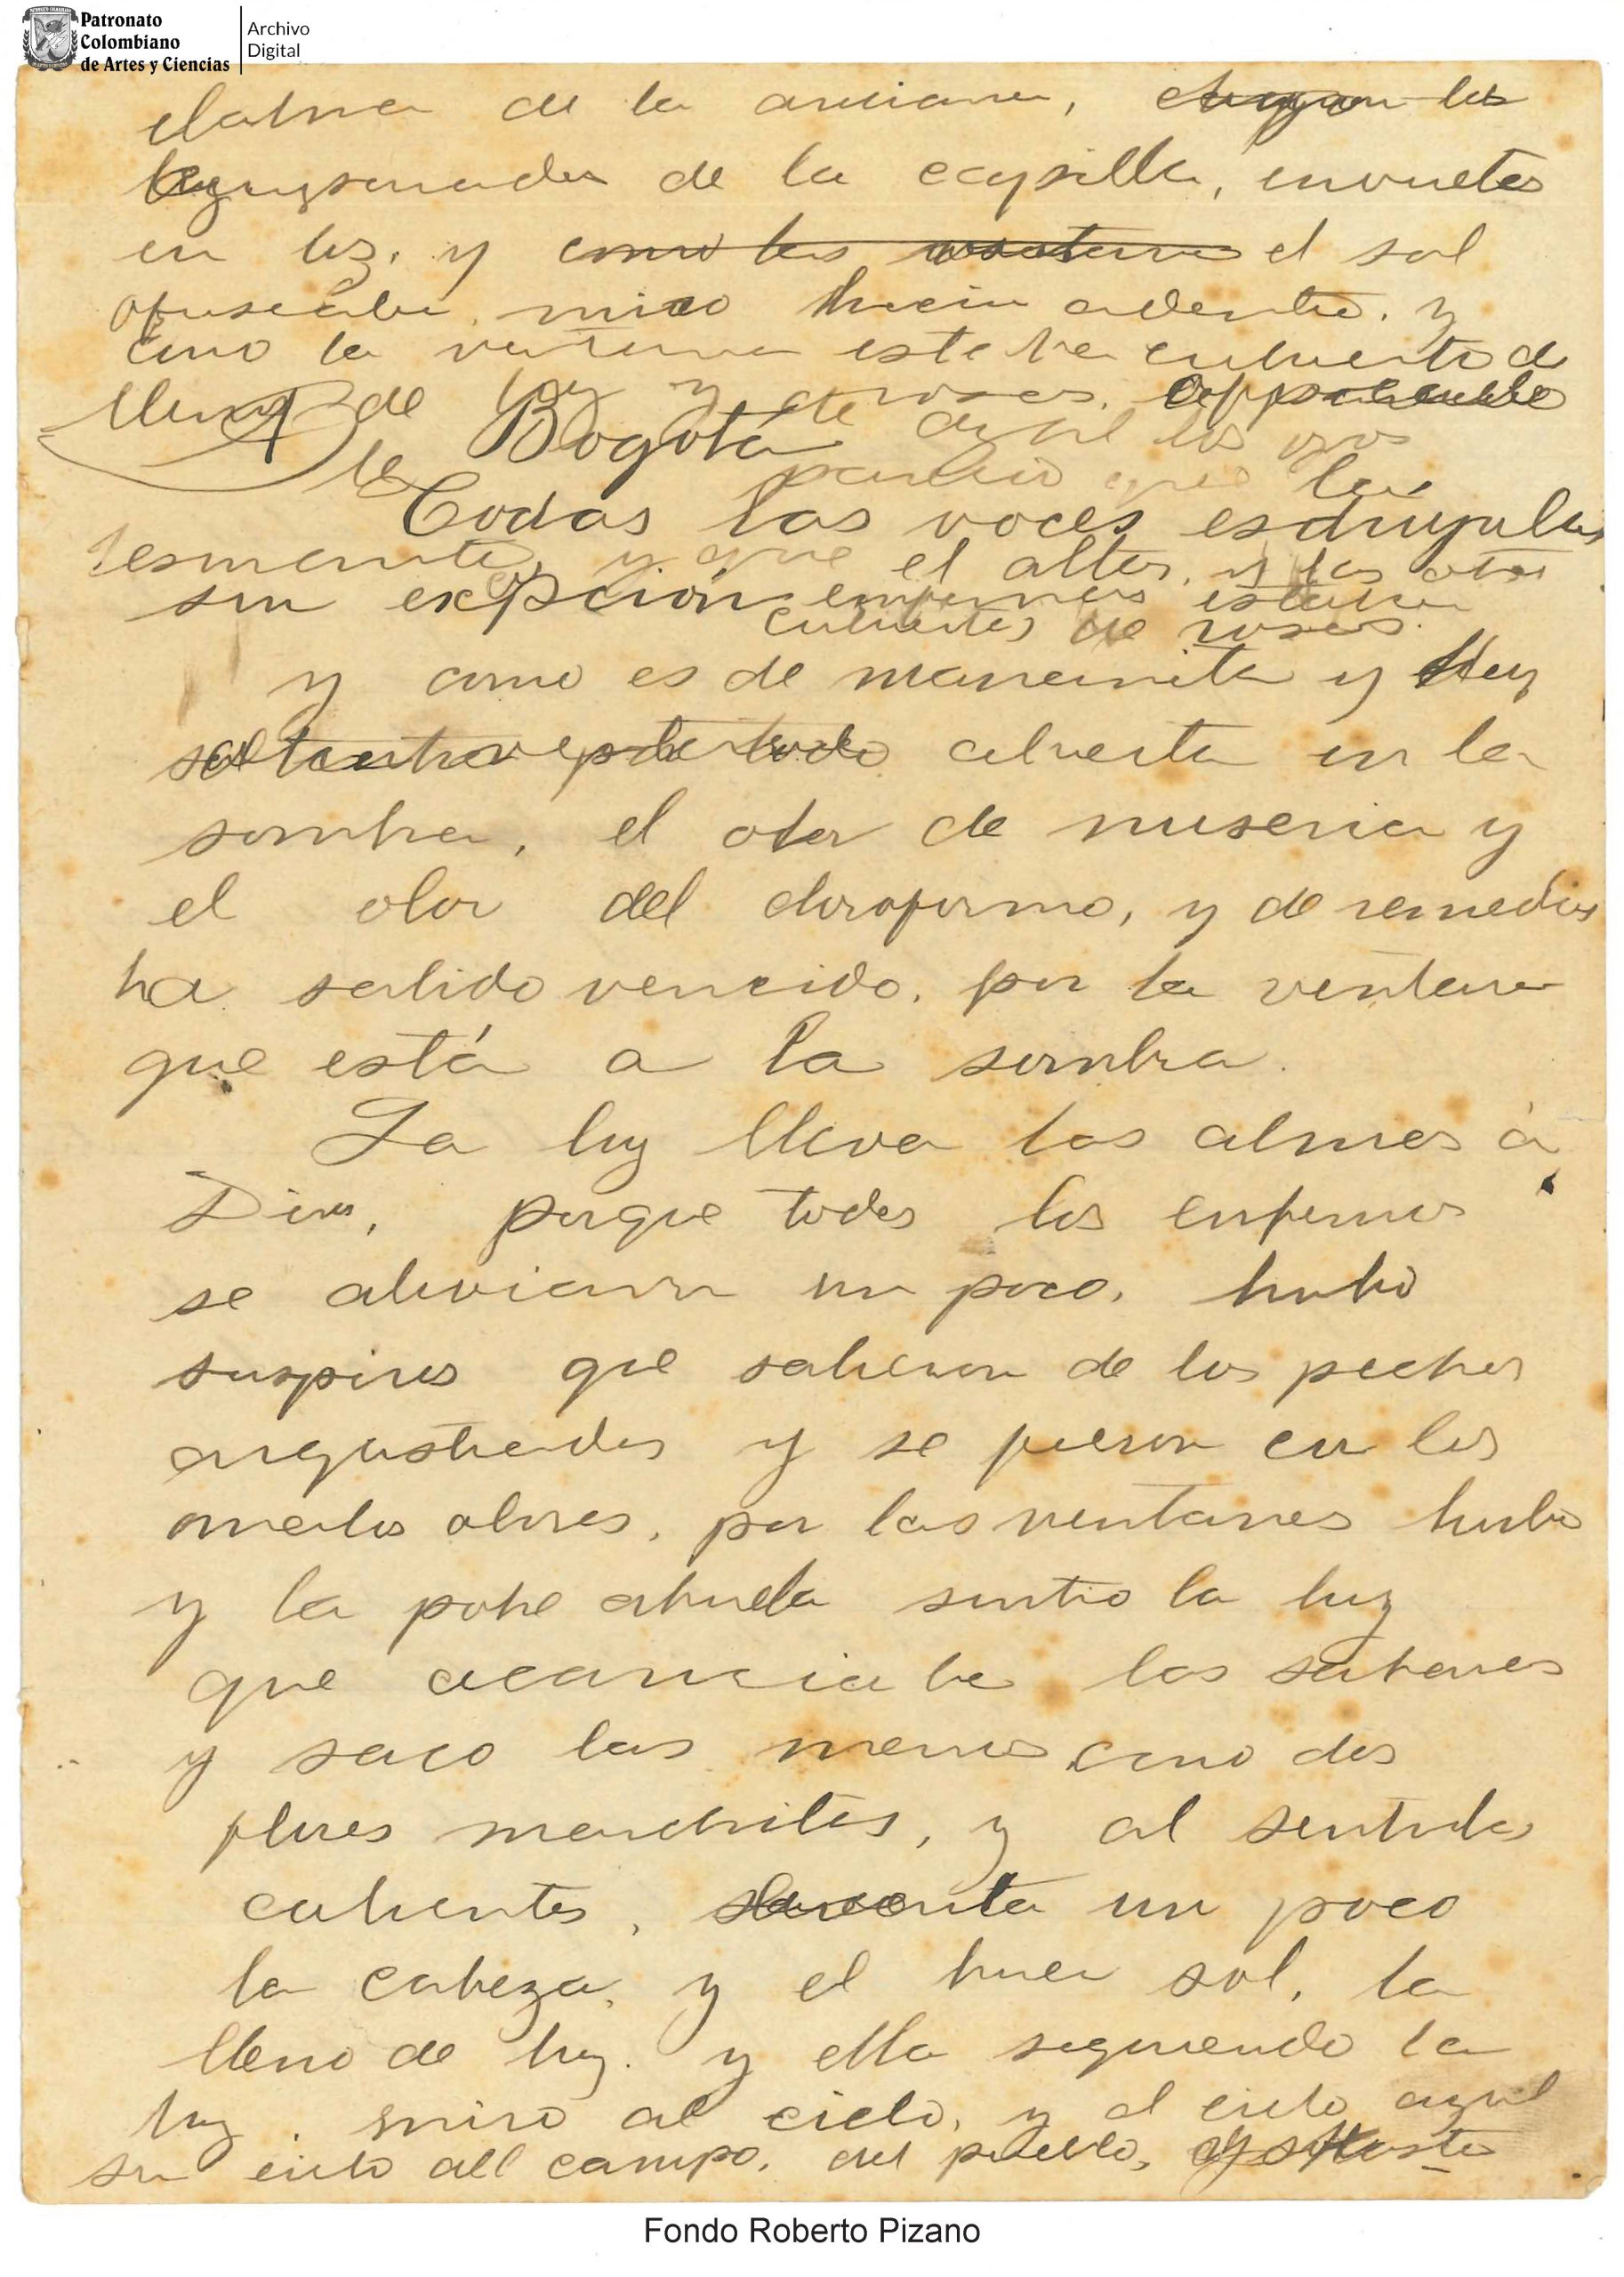 Patronato
Colombiano
de Artes y Ciencias
Archivo
Digital
el alma de la anciana,
de la capilla, envueltas
en luz, y como las ventanas el sol
ofuscaba, miro hacia adentro, y
como la ventana estaba cubierta de
llena de luz y de rosas,
A Bogotá
le azul los ojos
parecio que las
Todas las voces esdrujulas
y que el altar, y las otras
sin excpción enfermas estaban
cubiertas de rosas.
y como es de mananita y hay
abierta en la
sombra, el olor de miseria y
el olor del cloroformo, y de remedios
ha salido vencido, por la ventana
que está a la sombra.
La luz lleva las almas á
Dios, porque todos los enfermos
se aliviaron un poco, hubo
suspiros que salieron de los pechos
angustiados y se fueron con los
malos olores, por las ventanas hubo
y la pobre abuela sintio la luz
que acariciaba las sabanas
y saco las manos como dos
flores marchitas, y al sentirlas
calientes, levanta un poco
la cabeza, y el buen sol, la
lleno de luz. y ella siguiendo la
luz, miro al cielo, y el cielo azul
su cielo del campo, del pueblo,
Fondo Roberto Pizano